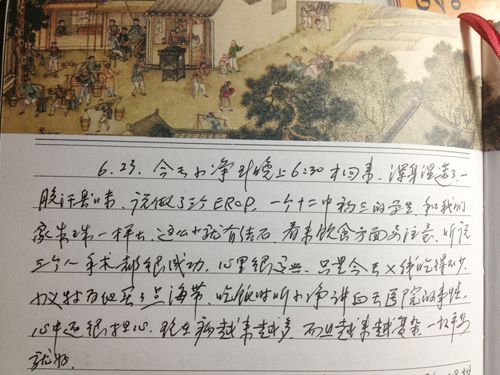 6.23. 今天小净到晚上6:30才回来，浑身湿透了一
股汗臭味，说做了三个ERCP，一个十二中初三的学生，和我们
家来来一样大，这么小就有结石，看来饮食方面要注意，听说
三个人手术都很成功，心里很，只是今天X线吃得不少，
特为他买了点海带，吃饭时听小净讲白天医院的事情，
心中还很担心，现在病越来越多，而且越来越复杂，一切平安
就好。